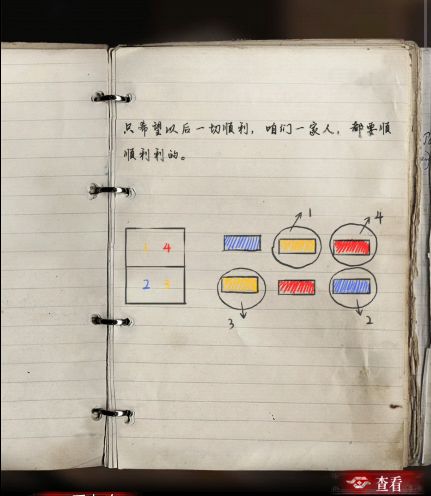 只希望以后一切顺利，咱们一家人，都要顺
顺利利的。
1
4
1 4
2 3
3
2
查看